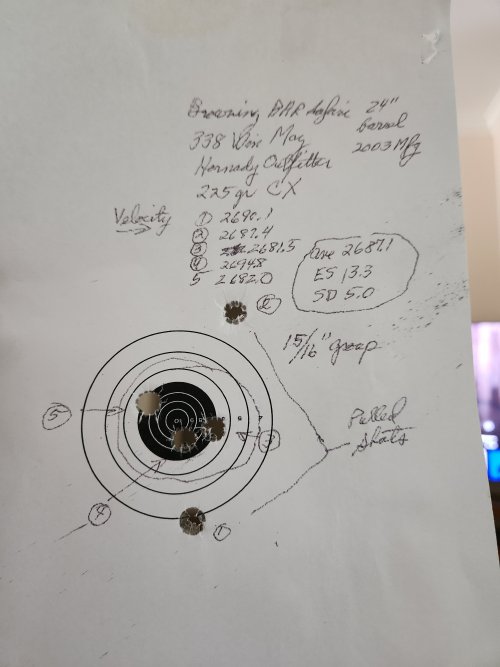 Browning BAR Safari 24"
338 Win Mag barrel
Hornady Outfitter 2003 Mfg
225 gr CX
Velocity ① 2690.1
② 2687.4
③ 2681.5
④ 2694.8
5 2682.0
Ave 2687.1
ES 13.3
SD 5.0
②
15/16" group
Pulled
shots
⑤
③
④
①